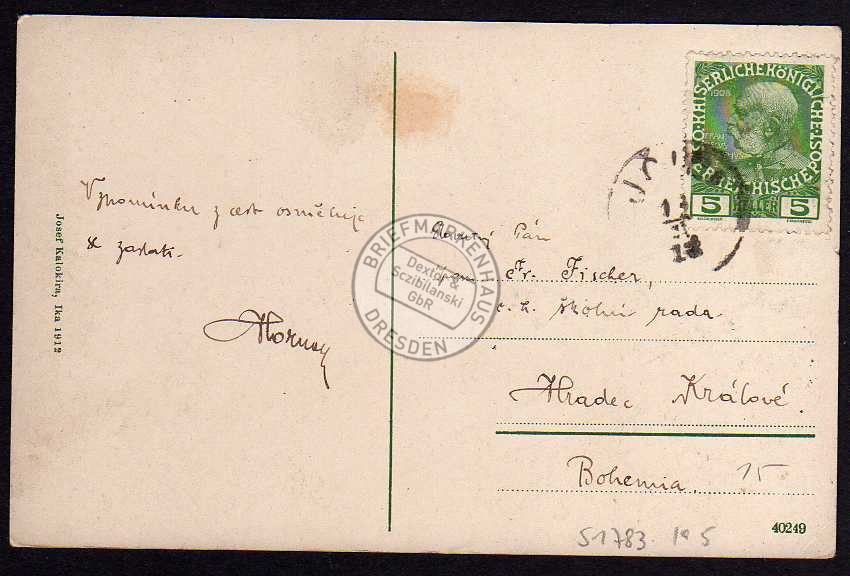 Vzpomínku z cest
zasílá
Josef Kalokira, Ika 1912
KAISERLICHE KÖNIGLICHE
ÖSTERREICHISCHE POST
1908
5 HELLER 5
13
BRIEFMARKENHAUS
Dextor &
Sczibilanski
GbR
DRESDEN
Pán
Fr. Fischer,
c. k. školní rada
Hradec Králové.
Bohemia. 15
40249
51783